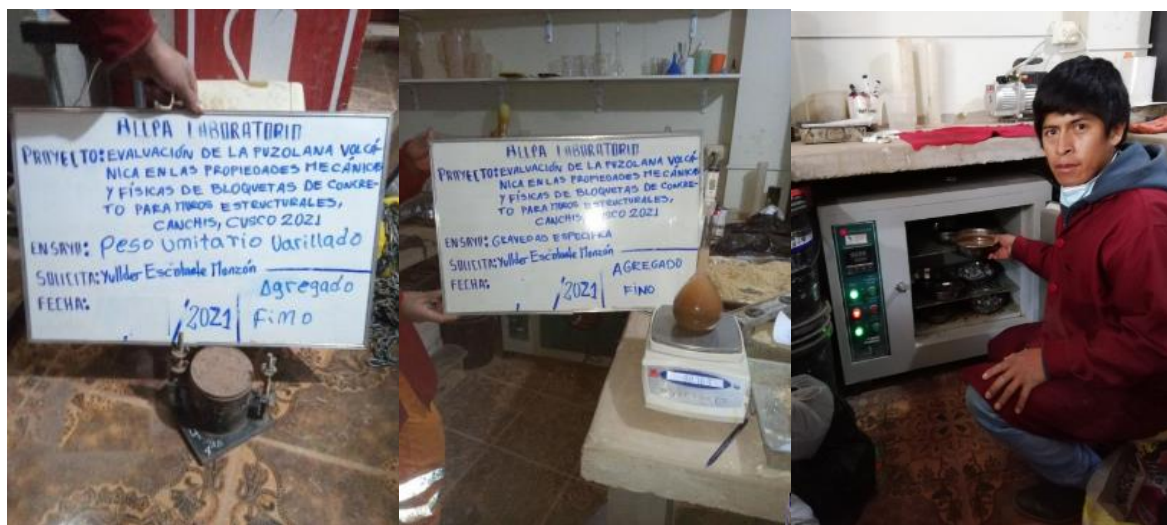 ALLPA LABORATORIO
PROYECTO: EVALUACIÓN DE LA PUZOLANA VOLCÁ
NICA EN LAS PROPIEDADES MECÁNICAS
Y FÍSICAS DE BLOQUETAS DE CONCRE-
TO PARA MUROS ESTRUCTURALES,
CANCHIS, CUSCO 2021
ENSAYO: Peso Unitario Varillado
SOLICITA: Yullder Escalante Monzón
FECHA: / /2021
Agregado
Fino
ALLPA LABORATORIO
PROYECTO: EVALUACIÓN DE LA PUZOLANA VOLCÁ
NICA EN LAS PROPIEDADES MECÁNICAS
Y FÍSICAS DE BLOQUETAS DE CONCRE-
TO PARA MUROS ESTRUCTURALES,
CANCHIS, CUSCO 2021
ENSAYO: GRAVEDAD ESPECIFICA
SOLICITA: Yullder Escalante Monzón
FECHA: / /2021
AGREGADO
FINO